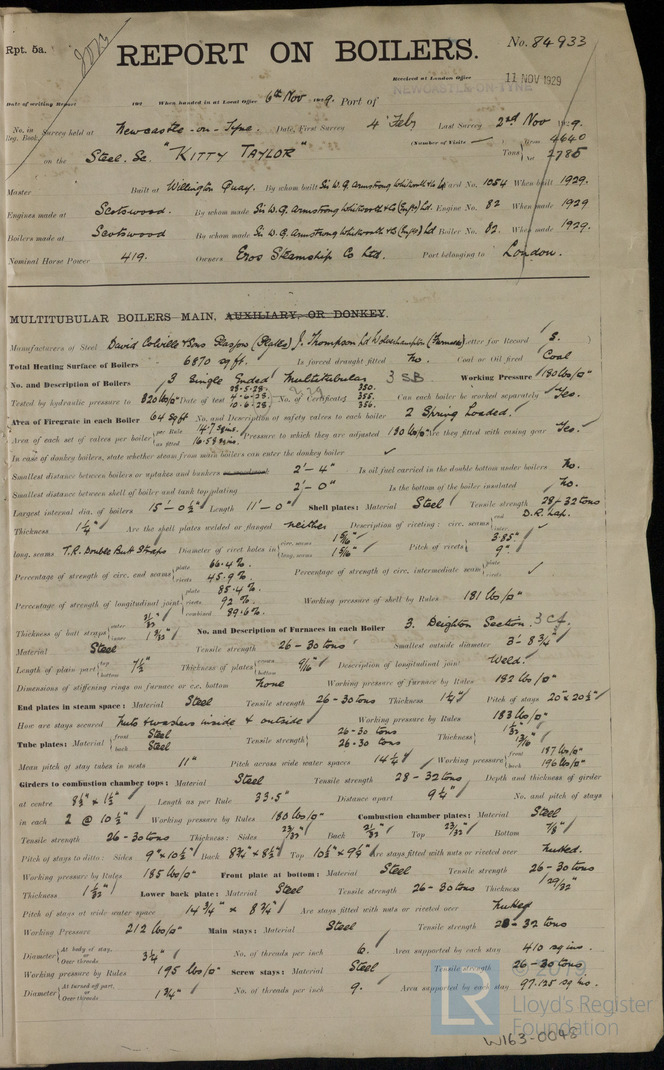 Rpt. 5a.
REPORT ON BOILERS.
No. 84933
Received at London Office 11 NOV 1929
NEWCASTLE-ON-TYNE
Date of writing Report 192 When handed in at Local Office 6th Nov 1929. Port of
No. in Reg. Book. Survey held at Newcastle-on-Tyne. Date, First Survey 4 Feby Last Survey 2nd Nov 1929.
(Number of Visits
on the Steel. Sc "KITTY TAYLOR" Tons Gross 4640 Net 2785
Master Built at Willington Quay. By whom built Sir W. G. Armstrong Whitworth & Co Yard No. 1054 When built 1929.
Engines made at Scotswood. By whom made Sir W. G. Armstrong Whitworth & Co (Engrs) Ld. Engine No. 82 When made 1929
Boilers made at Scotswood By whom made Sir W. G. Armstrong Whitworth & Co (Engrs) Ld Boiler No. 82. When made 1929.
Nominal Horse Power 419. Owners Eros Steamship Co Ltd. Port belonging to London.
MULTITUBULAR BOILERS MAIN, AUXILIARY, OR DONKEY.
Manufacturers of Steel David Colville & Sons Glasgow (Plates) J. Thompson Ld Wolverhampton (Furnaces) Letter for Record S.
Total Heating Surface of Boilers 6870 sq ft. Is forced draught fitted No. Coal or Oil fired Coal
No. and Description of Boilers 3 Single Ended Multitubular 3 SB Working Pressure 180 lbs/□"
Tested by hydraulic pressure to 320 lbs/□" Date of test 23.5.28. 4.6.28. 10.6.28. No. of Certificates 350. 355. 356. Can each boiler be worked separately Yes.
Area of Firegrate in each Boiler 64 sq ft No. and Description of safety valves to each boiler 2 Spring Loaded.
Area of each set of valves per boiler per Rule 14.7 sq ins. as fitted 16.58 sq ins. Pressure to which they are adjusted 180 lbs/□" Are they fitted with easing gear Yes.
In case of donkey boilers, state whether steam from main boilers can enter the donkey boiler ✓
Smallest distance between boilers or uptakes and bunkers 2'-4" Is oil fuel carried in the double bottom under boilers No.
Smallest distance between shell of boiler and tank top plating 2'-0" Is the bottom of the boiler insulated No.
Largest internal dia. of boilers 15'-0½" Length 11'-0" Shell plates: Material Steel Tensile strength 28-32 tons
Thickness 1¼" Are the shell plates welded or flanged neither Description of riveting: circ. seams end D.R. Lap. inter. ✓
long. seams T.R. Double Butt Straps Diameter of rivet holes in circ. seams 1 5/16" long. seams 1 5/16" Pitch of rivets 3.85" 9"
Percentage of strength of circ. end seams plate 66.4 %. rivets 45.9 %. Percentage of strength of circ. intermediate seam plate rivets ✓
Percentage of strength of longitudinal joint plate 85.4 %. rivets 92 % combined 89.6 %. Working pressure of shell by Rules 181 lbs/□"
Thickness of butt straps outer 31/32" inner 1 3/32" No. and Description of Furnaces in each Boiler 3. Deighton Section. 3 Cf.
Material Steel Tensile strength 26-30 tons Smallest outside diameter 3'-8¾"
Length of plain part top bottom 7½" Thickness of plates crown bottom 9/16" Description of longitudinal joint Weld.
Dimensions of stiffening rings on furnace or c.c. bottom None Working pressure of furnace by Rules 182 lbs/□"
End plates in steam space: Material Steel Tensile strength 26-30 tons Thickness 1¼" Pitch of stays 20" x 20½"
How are stays secured Nuts & washers inside & outside Working pressure by Rules 183 lbs/□"
Tube plates: Material front Steel back Steel Tensile strength 26-30 tons 26-30 tons Thickness 1 1/32" 13/16"
Mean pitch of stay tubes in nests 11" Pitch across wide water spaces 14½" Working pressure front 187 lbs/□" back 196 lbs/□"
Girders to combustion chamber tops: Material Steel Tensile strength 28-32 tons Depth and thickness of girder
at centre 8½" x 1½" Length as per Rule 33.5" Distance apart 9¼" No. and pitch of stays
in each 2 @ 10½" Working pressure by Rules 180 lbs/□" Combustion chamber plates: Material Steel
Tensile strength 26-30 tons Thickness: Sides 23/32" Back 21/32" Top 23/32" Bottom 7/8"
Pitch of stays to ditto: Sides 9" x 10½" Back 8¾" x 8½" Top 10½" x 9¼" Are stays fitted with nuts or riveted over Nutted.
Working pressure by Rules 185 lbs/□" Front plate at bottom: Material Steel Tensile strength 26-30 tons
Thickness 1 1/32" Lower back plate: Material Steel Tensile strength 26-30 tons Thickness 29/32"
Pitch of stays at wide water space 14¾" x 8¾" Are stays fitted with nuts or riveted over Nutted
Working Pressure 212 lbs/□" Main stays: Material Steel Tensile strength 28-32 tons
Diameter At body of stay, or Over threads 3¼" No. of threads per inch 6. Area supported by each stay 410 sq ins.
Working pressure by Rules 195 lbs/□" Screw stays: Material Steel Tensile strength 26-30 tons
Diameter At turned off part, or Over threads 1¾" No. of threads per inch 9. Area supported by each stay 97.125 sq ins.
© 2019
LR Lloyd's Register
Foundation
W163-0048